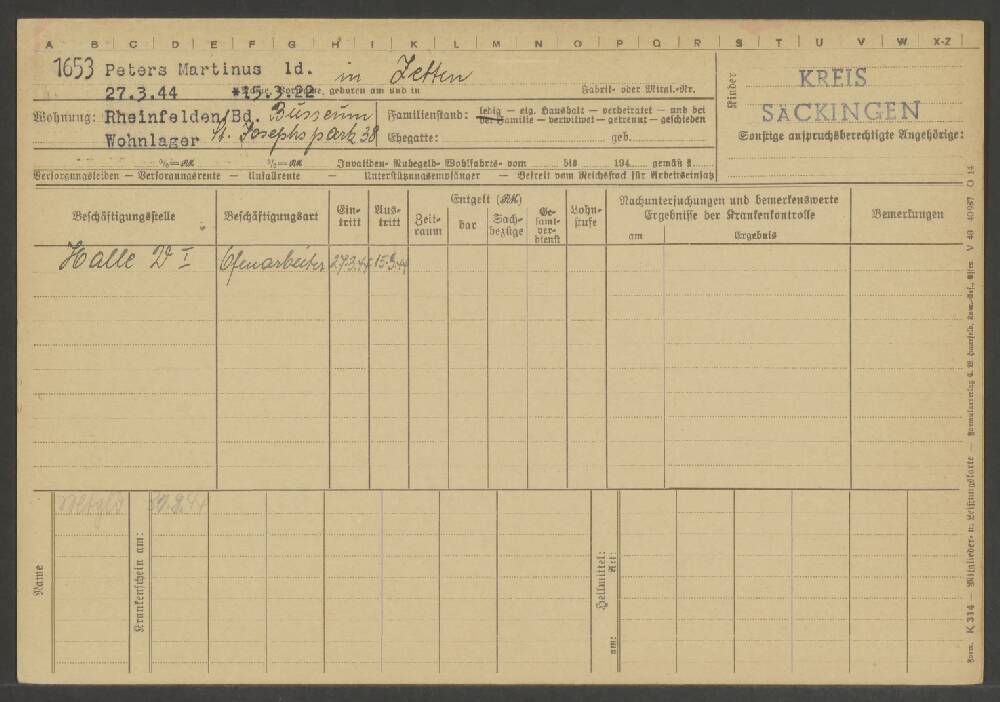 A B C D E F G H I K L M N O P Q R S T U V W X-Z
1653 Peters Martinus ld. in Zetten
27.3.44 *15.3.22
Name, Vorname, geboren am und in Fabrik- oder Mitgl.-Nr.
Wohnung: Rheinfelden/Bd. Bussum
Wohnlager St. Josephspark 38
Familienstand: ledig — eig. Haushalt — verheiratet — und bei
der Familie — verwitwet — getrennt — geschieden
Ehegatte: geb.
Kinder
KREIS
SÄCKINGEN
Sonstige anspruchsberechtigte Angehörige:
%=RM %=RM Invaliden- Ruhegeld- Wohlfahrts- vom bis 194 gemäß §
Versorgungsleiden — Versorgungsrente — Unfallrente — Unterstützungsempfänger — Befreit vom Reichsstock für Arbeitseinsatz
Beschäftigungsstelle Beschäftigungsart Ein-tritt Aus-tritt Entgelt (RM) Zeit-raum bar Sach-bezüge Ge-samt-ver-dienst Lohn-stufe
Nachuntersuchungen und bemerkenswerte
Ergebnisse der Krankenkontrolle
am Ergebnis
Bemerkungen
Halle D I Ofenarbeiter 27.3.44
Name
Krankenschein am:
Heilmittel:
Art:
am:
Form. K 314 — Mitglieder- u. Leistungskarte —
V 40 40987 O 14